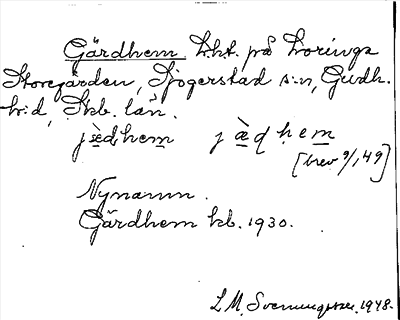 Gärdhem lht. på Loringa
Storegården, Sjogerstad s:n, Gudh.
h:d, Skb. län.
jæ̀dhem j æ̀ d h e m
[brev 9/1 49]
Nynamn.
Gärdhem kb. 1930.
L M. Svenungsson. 1948.